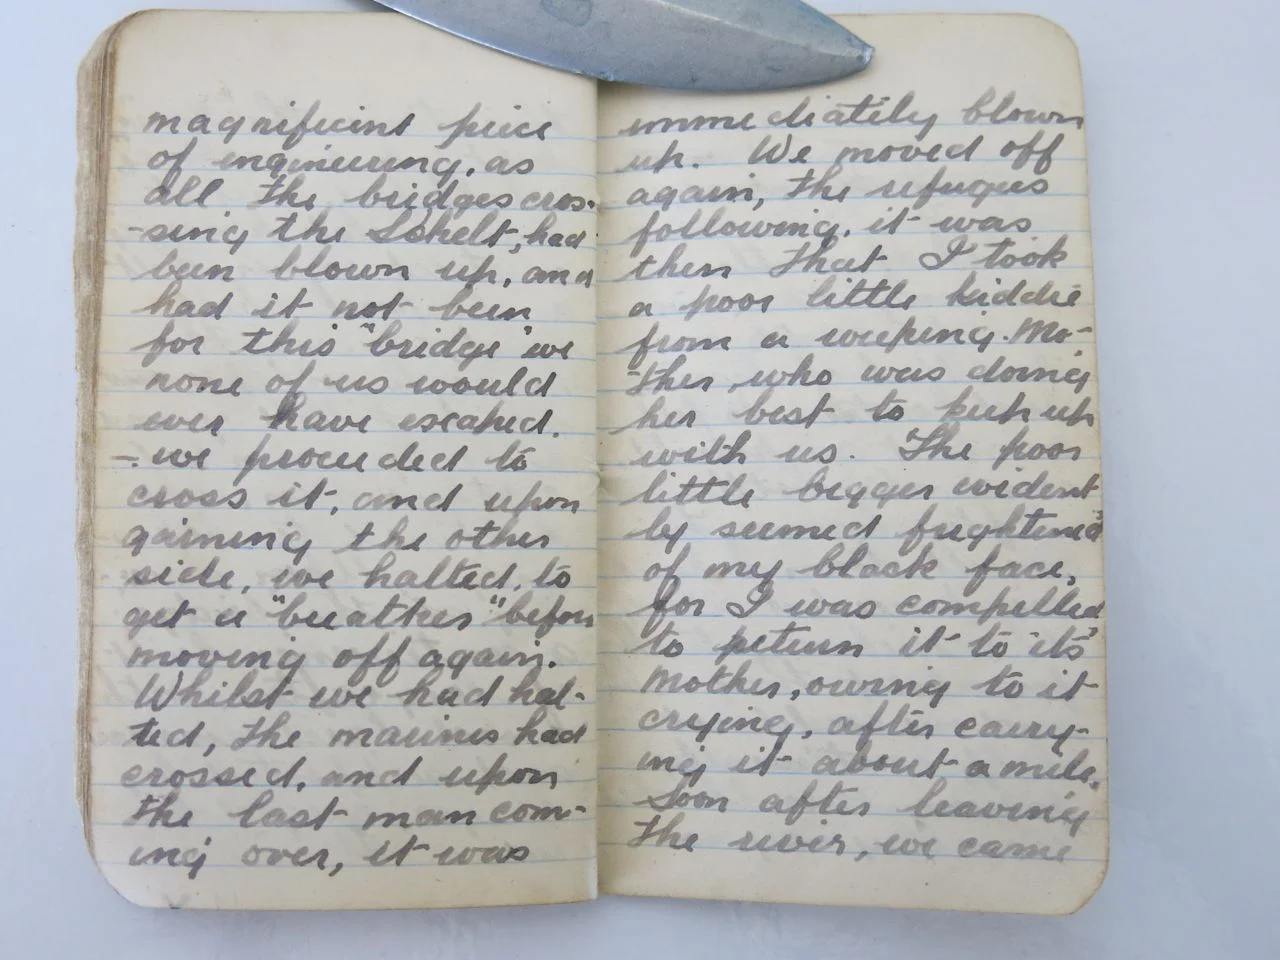 magnificent piece
of engineering, as
all the bridges cros-
-sing the Schelt, had
been blown up, and
had it not been
for this "bridge" we
none of us would
ever have escaped.
- we proceeded to
cross it, and upon
gaining the other
side, we halted, to
get a "breather" before
moving off again.
Whilst we had hal-
ted, the marines had
crossed, and upon
the last man com-
ing over, it was
immediately blown
up. We moved off
again, the refugees
following, it was
then that I took
a poor little kiddie
from a weeping Mo-
-ther, who was doing
her best to keep up
with us. The poor
little beggar evident
ly seemed frightened
of my black face,
for I was compelled
to return it to its'
Mother, owing to it
crying, after carry-
ing it about a mile.
Soon after leaving
the river, we came